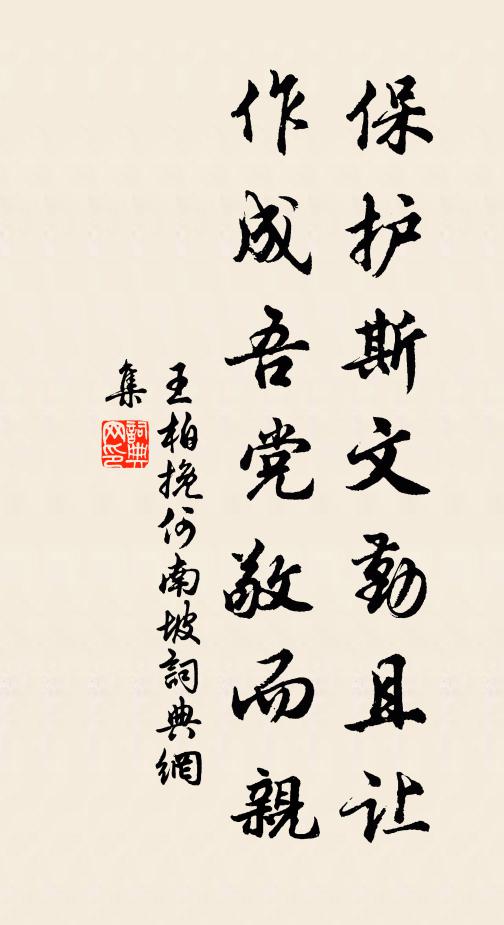 保护斯文勤且让
作成吾党敬而親
王柏挽何南坡詞典網
集
詞典
网印